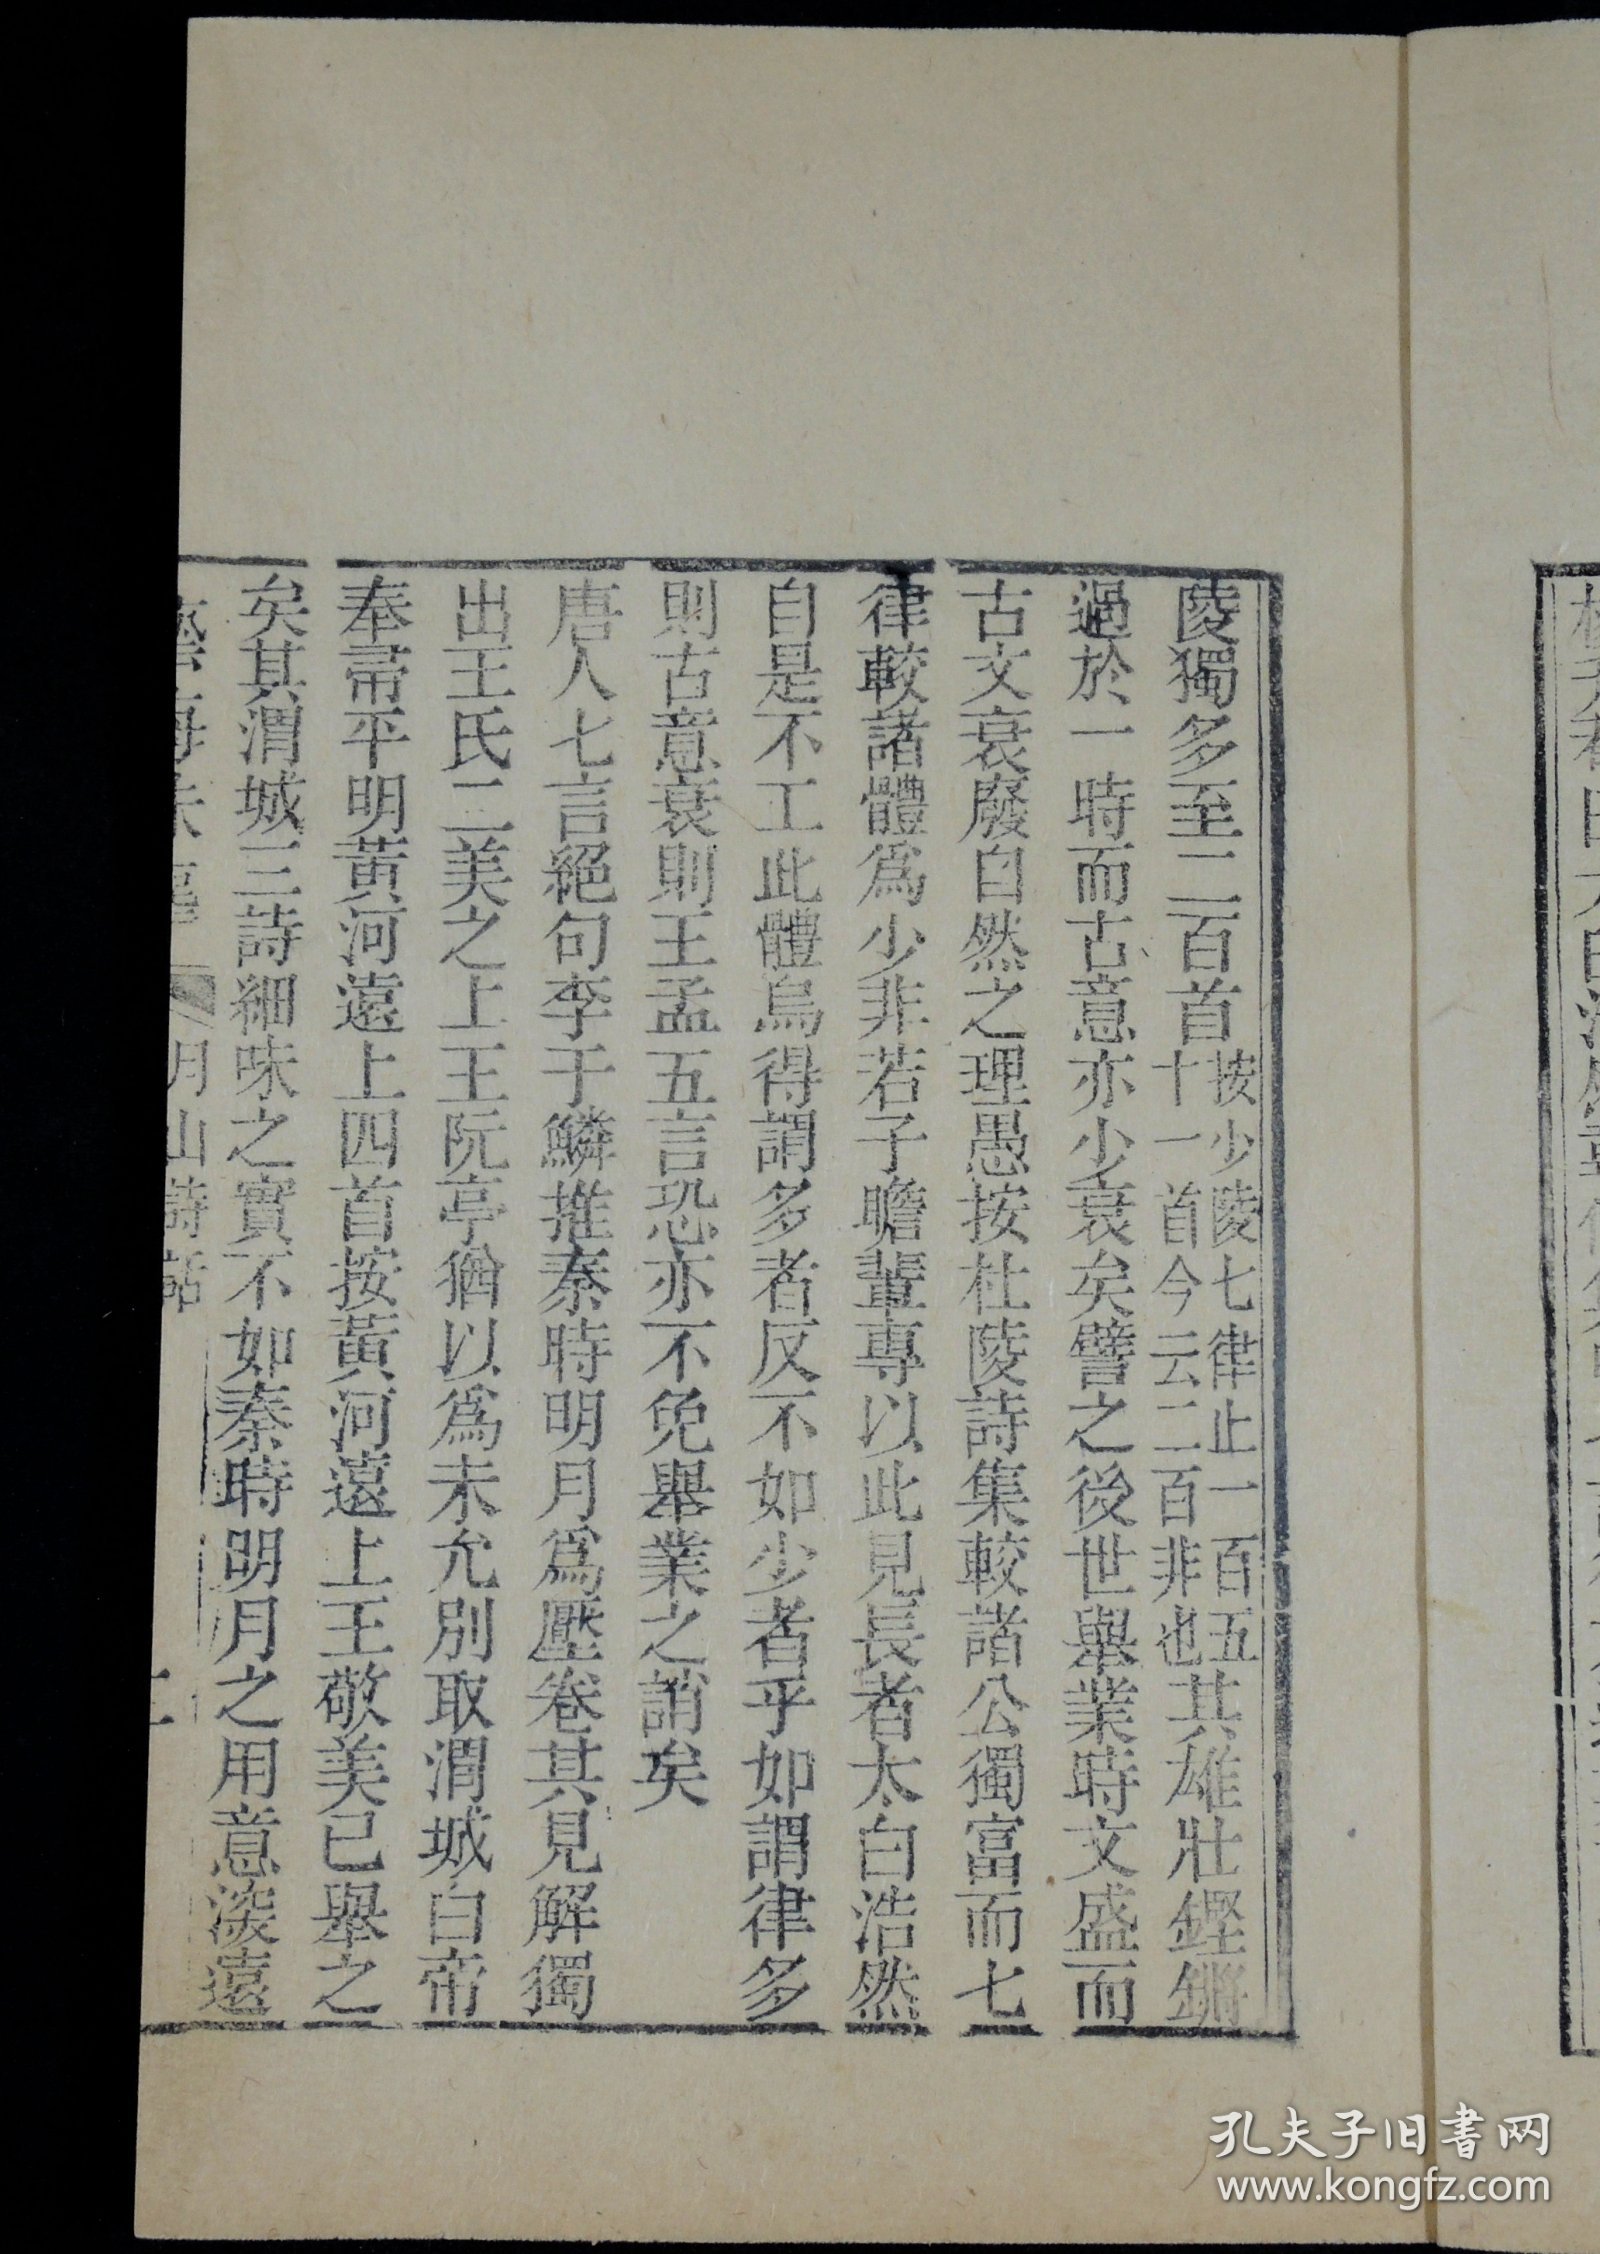 陵獨多至二百首按少陵七律止一百五十一首今云二百非也其雄壯鏗鏘
過於一時而古意亦少衰矣譬之後世舉業時文盛而
古文衰廢自然之理愚按杜陵詩集較諸公獨富而七
律較諸體爲少非若子瞻輩專以此見長者太白浩然
自是不工此體烏得謂多者反不如少者乎如謂律多
則古意衰則王孟五言恐亦不免舉業之誚矣
唐人七言絕句李于鱗推秦時明月爲壓卷其見解獨
出王氏二美之上王阮亭猶以爲未允別取渭城白帝
奉帚平明黃河遠上四首按黃河遠上王敬美已舉之
矣其渭城三詩細味之實不如秦時明月之用意深遠
月山詩話
孔夫子旧书网
www.kongfz.com